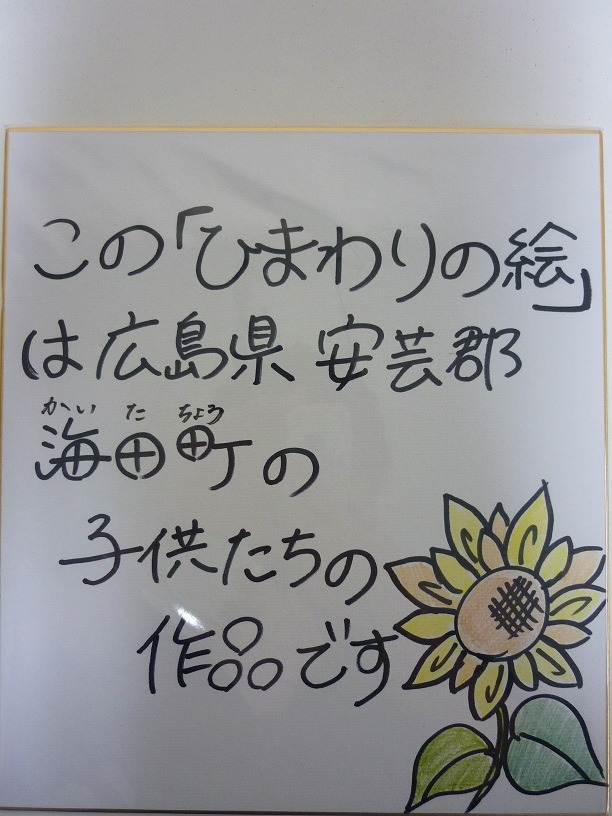 この「ひまわりの絵」
は広島県 安芸郡
かいたちょう
海田町の
子供たちの
作品です